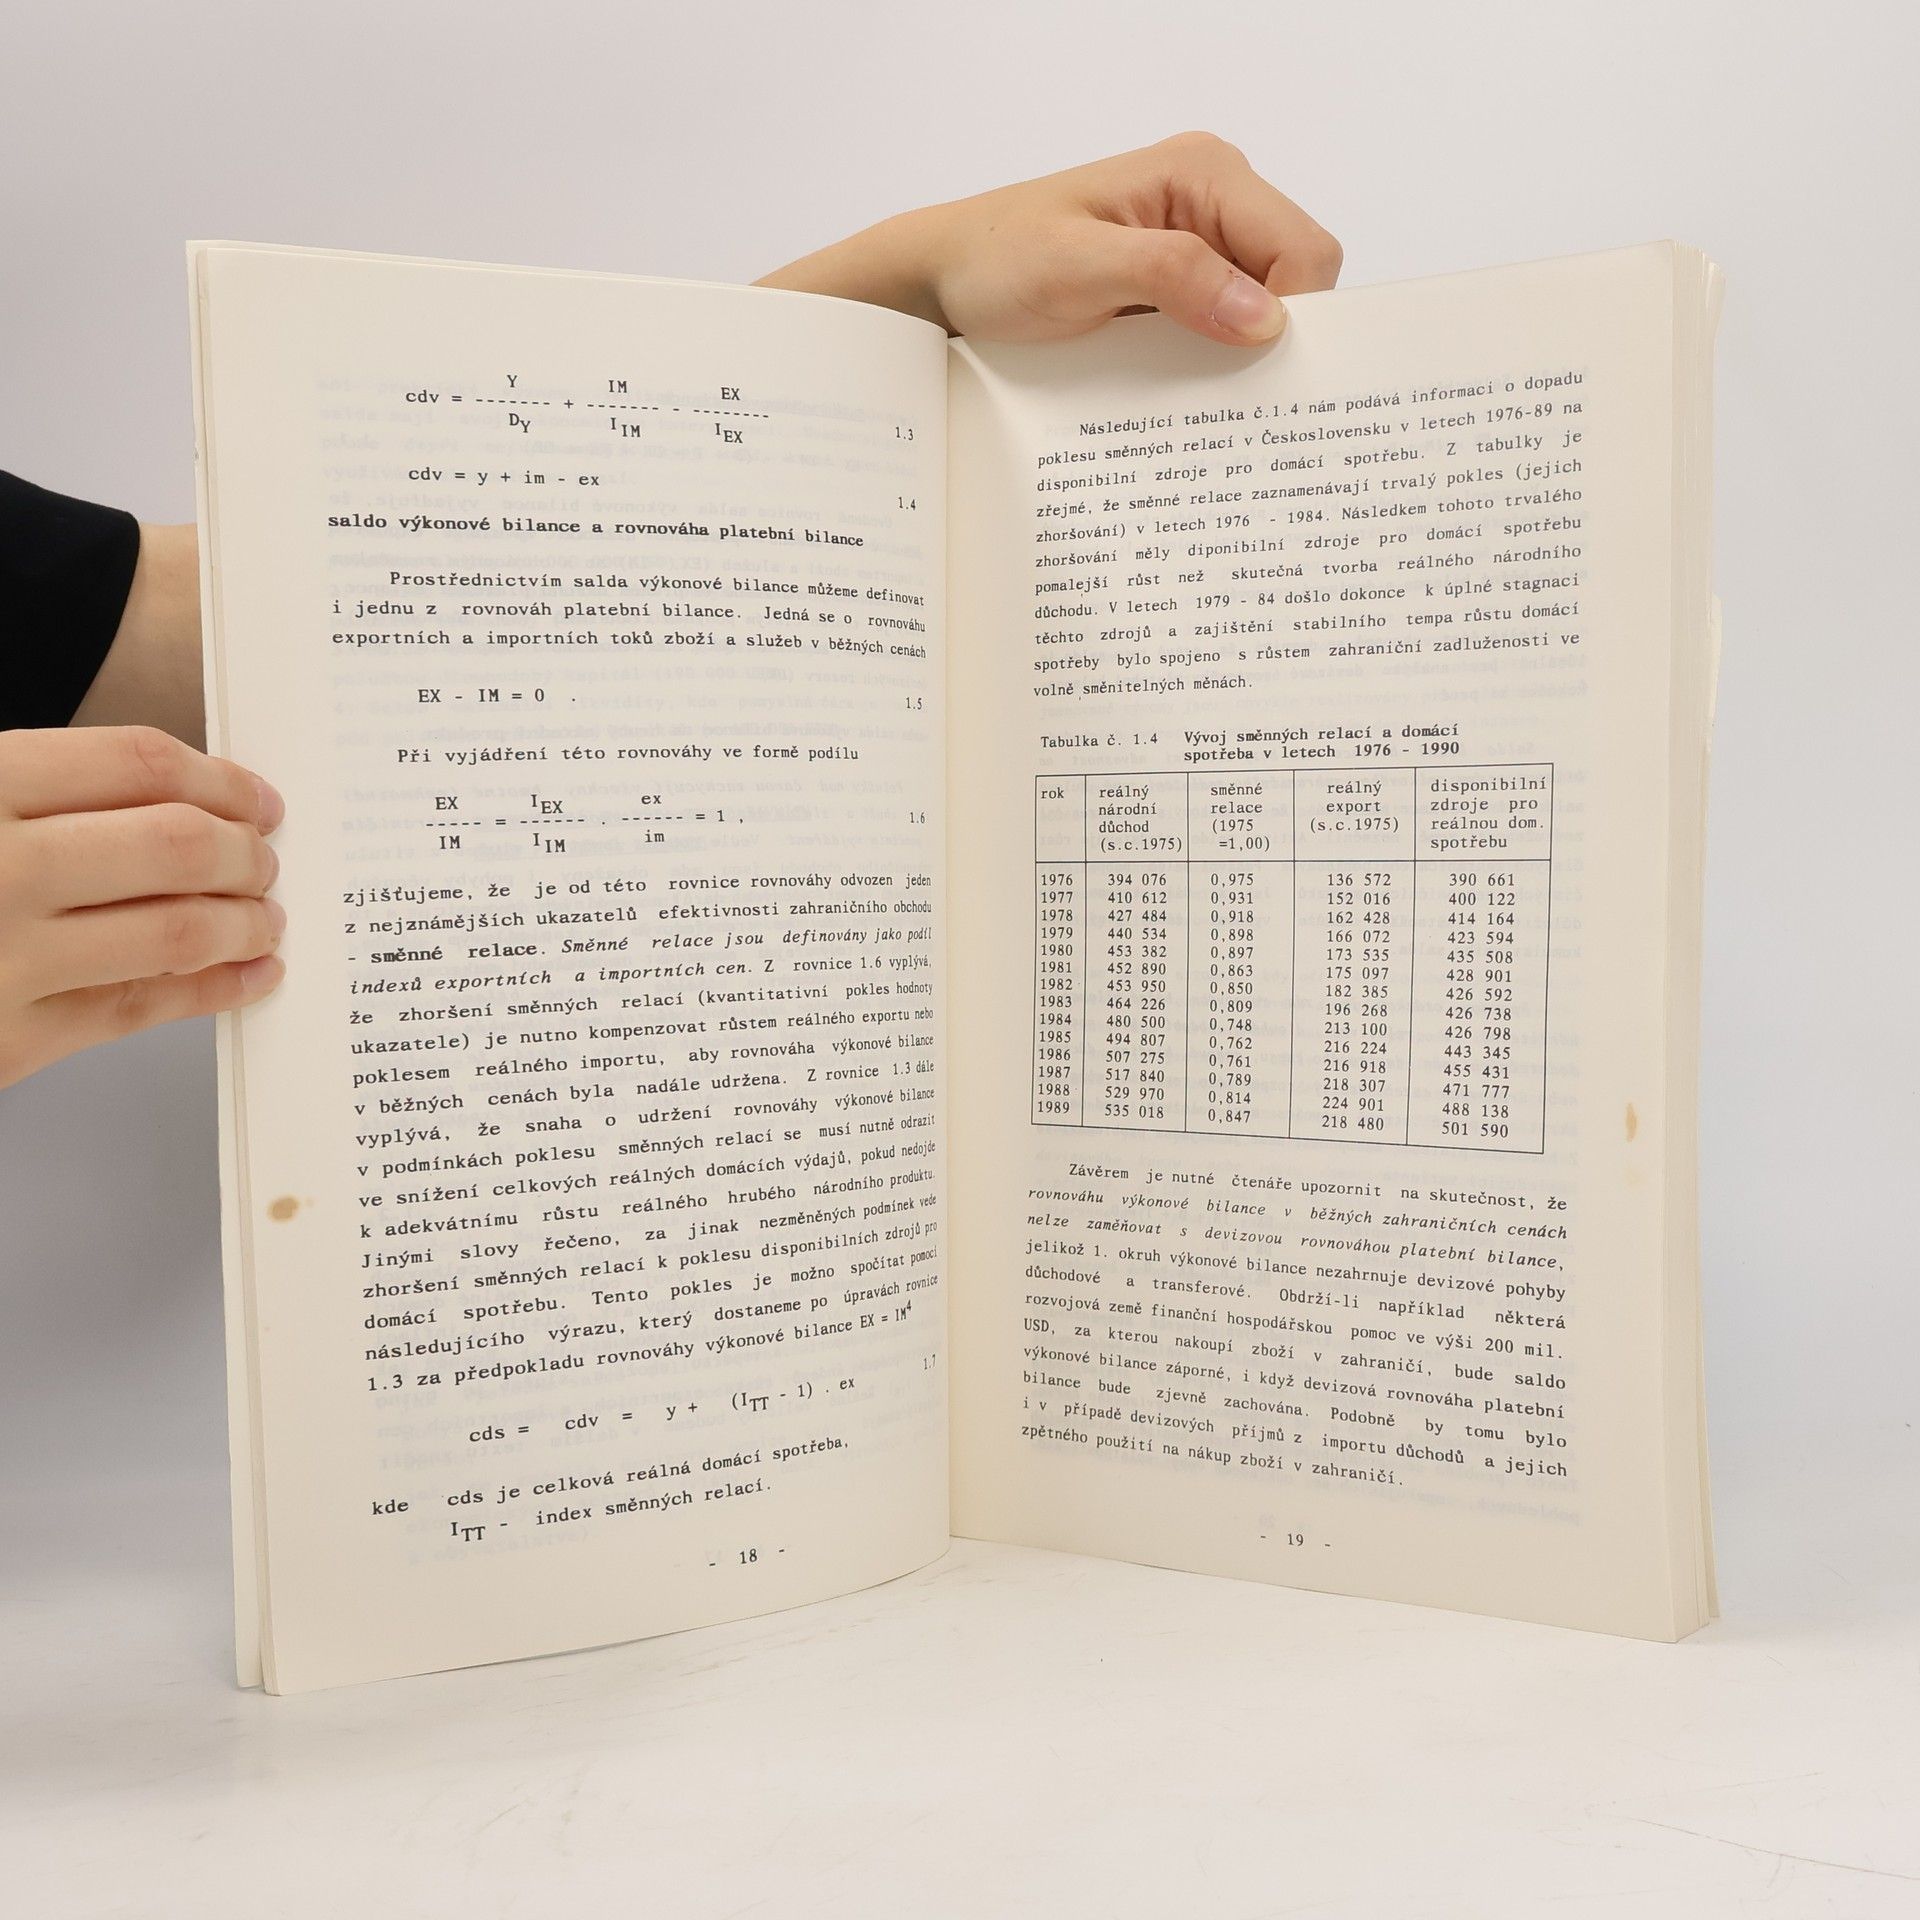 Y IM EX
cdv = ------- + ------- - --------
D_Y I_IM I_EX 1.3
cdv = y + im - ex
1.4
saldo výkonové bilance a rovnováha platební bilance
Prostřednictvím salda výkonové bilance můžeme definovat
i jednu z rovnováh platební bilance. Jedná se o rovnováhu
exportních a importních toků zboží a služeb v běžných cenách
EX - IM = 0 . 1.5
Při vyjádření této rovnováhy ve formě podílu
EX I_EX ex
----- = ------- . ------ = 1 , 1.6
IM I_IM im
zjišťujeme, že je od této rovnice rovnováhy odvozen jeden
z nejznámějších ukazatelů efektivnosti zahraničního obchodu
- směnné relace. Směnné relace jsou definovány jako podíl
indexů exportních a importních cen. Z rovnice 1.6 vyplývá,
že zhoršení směnných relací (kvantitativní pokles hodnoty
ukazatele) je nutno kompenzovat růstem reálného exportu nebo
poklesem reálného importu, aby rovnováha výkonové bilance
v běžných cenách byla nadále udržena. Z rovnice 1.3 dále
vyplývá, že snaha o udržení rovnováhy výkonové bilance
v podmínkách poklesu směnných relací se musí nutně odrazit
ve snížení celkových reálných domácích výdajů, pokud nedojde
k adekvátnímu růstu reálného hrubého národního produktu.
Jinými slovy řečeno, za jinak nezměněných podmínek vede
zhoršení směnných relací k poklesu disponibilních zdrojů pro
domácí spotřebu. Tento pokles je možno spočítat pomocí
následujícího výrazu, který dostaneme po úpravách rovnice
1.3 za předpokladu rovnováhy výkonové bilance EX = IM⁴
1.7
cds = cdv = y + (I_TT - 1) . ex
kde cds je celková reálná domácí spotřeba,
I_TT - index směnných relací.
- 18 -
Následující tabulka č.1.4 nám podává informaci o dopadu
poklesu směnných relací v Československu v letech 1976-89 na
disponibilní zdroje pro domácí spotřebu. Z tabulky je
zřejmé, že směnné relace zaznamenávají trvalý pokles (jejich
zhoršování) v letech 1976 - 1984. Následkem tohoto trvalého
zhoršování měly diponibilní zdroje pro domácí spotřebu
pomalejší růst než skutečná tvorba reálného národního
důchodu. V letech 1979 - 84 došlo dokonce k úplné stagnaci
těchto zdrojů a zajištění stabilního tempa růstu domácí
spotřeby bylo spojeno s růstem zahraniční zadluženosti ve
volně směnitelných měnách.
Tabulka č. 1.4 Vývoj směnných relací a domácí
spotřeba v letech 1976 - 1990
rok reálný směnné reálný disponibilní
národní relace export zdroje pro
důchod (1975 (s.c.1975) reálnou dom.
(s.c.1975) =1,00) spotřebu
1976 394 076 0,975 136 572 390 661
1977 410 612 0,931 152 016 400 122
1978 427 484 0,918 162 428 414 164
1979 440 534 0,898 166 072 423 594
1980 453 382 0,897 173 535 435 508
1981 452 890 0,863 175 097 428 901
1982 453 950 0,850 182 385 426 592
1983 464 226 0,809 196 268 426 738
1984 480 500 0,748 213 100 426 798
1985 494 807 0,762 216 224 443 345
1986 507 275 0,761 216 918 455 431
1987 517 840 0,789 218 307 471 777
1988 529 970 0,814 224 901 488 138
1989 535 018 0,847 218 480 501 590
Závěrem je nutné čtenáře upozornit na skutečnost, že
rovnováhu výkonové bilance v běžných zahraničních cenách
nelze zaměňovat s devizovou rovnováhou platební bilance,
jelikož 1. okruh výkonové bilance nezahrnuje devizové pohyby
důchodové a transferové. Obdrží-li například některá
rozvojová země finanční hospodářskou pomoc ve výši 200 mil.
USD, za kterou nakoupí zboží v zahraničí, bude saldo
výkonové bilance záporné, i když devizová rovnováha platební
bilance bude zjevně zachována. Podobně by tomu bylo
i v případě devizových příjmů z importu důchodů a jejich
zpětného použití na nákup zboží v zahraničí.
- 19 -